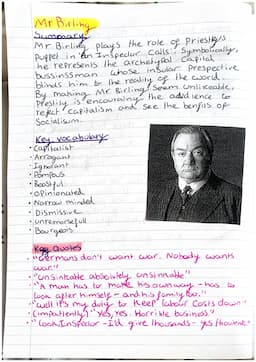 Mr Birling
Summary:
Mr Birling plays the role of Priestlys
Puppet in 'An Inspector Calls'. Symbolically,
he represents the archetypal Capital
bussinssman whose insular Prespective
blinds him to the reality of the world.
By making Mr Birling Seem unliceable,
Prestly is encouraging the audience to
reject capitalism and see the benfits of
Socialism.
Key vocabulary
· Capitalist
· Arrogant
· Ignorant
· Pompous
· Boastful
· opinionated
· Narrow minded
· Dismissive
· unremorsefull
· Bourgeois
Key Quotes
· "Germans don't want war. Nobody wants
war"
· "unsinkable absolutely unsinkable"
· "A man has to make his own way - has to
look after himself - and his family too."
· "well it's my duty to keep labour costs down"
· (impatiently) "Yes, yes. Horrible business"
· "look Inspector - I'd give thousands - yes thousands"